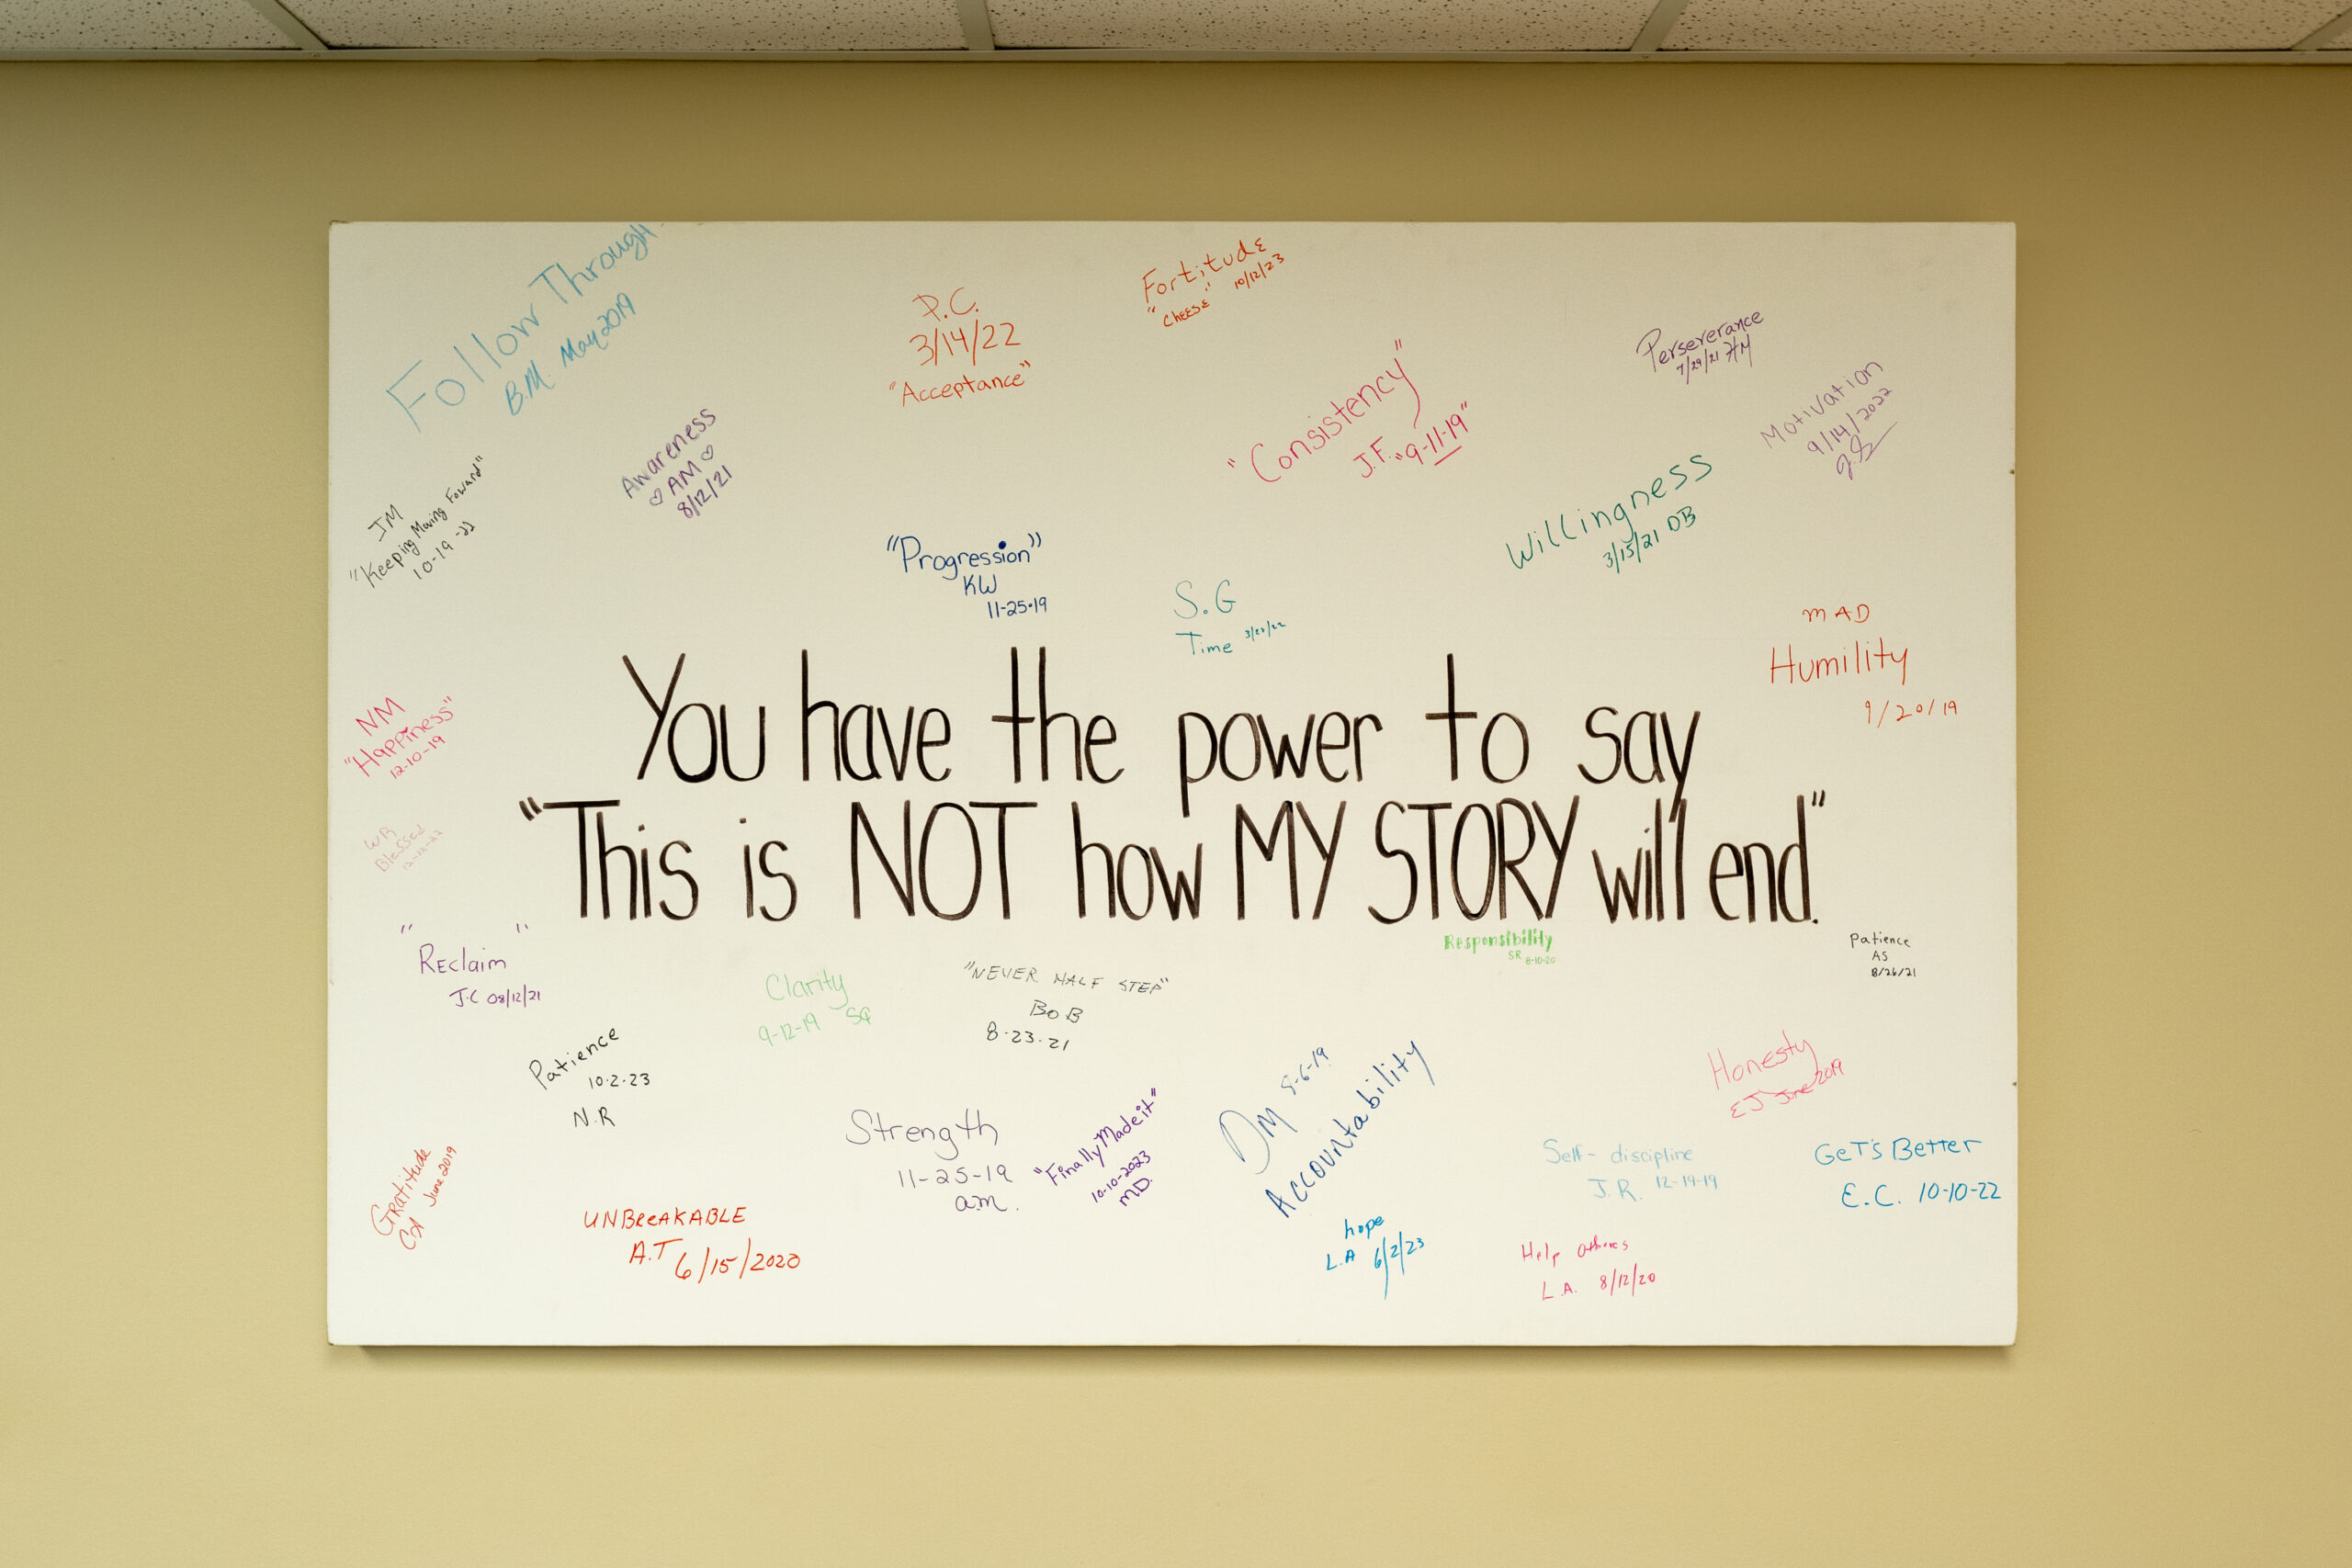 Follow Through
B.M. May 2019
P.C.
3/14/22
"Acceptance"
Fortitude
"Cheese" 10/12/23
Perserverance
7/29/21 HM
"Consistency"
J.F. "9-11-19"
Motivation
9/14/2022
Awareness
♡ AM ♡
8/12/21
JM
"Keeping Moving Foward"
10-19-22
Willingness
3/15/21 DB
"Progression"
KW
11-25-19
S.G
Time
MAD
Humility
9/20/19
You have the power to say
"This is NOT how MY STORY will end."
NM
"Happiness"
12-10-19
WR
Blessed
12-12-22
"Reclaim"
J.C 08/12/21
Clarity
9-12-19 SQ
"NEVER HALF STEP"
BoB
8-23-21
Responsibility
SR 8-10-20
Patience
AS
8/26/21
Patience
10-2-23
N.R
Strength
11-25-19
a.m.
"Finally Made it"
10-10-2023
MD.
DM
Accountability
Honesty
EJ June 2019
Self-discipline
J.R. 12-19-19
GeT's Better
E.C. 10-10-22
Gratitude
June 2019
UNBreAKABLE
A.T 6/15/2020
hope
L.A 6/2/23
Help others
L.A. 8/12/20